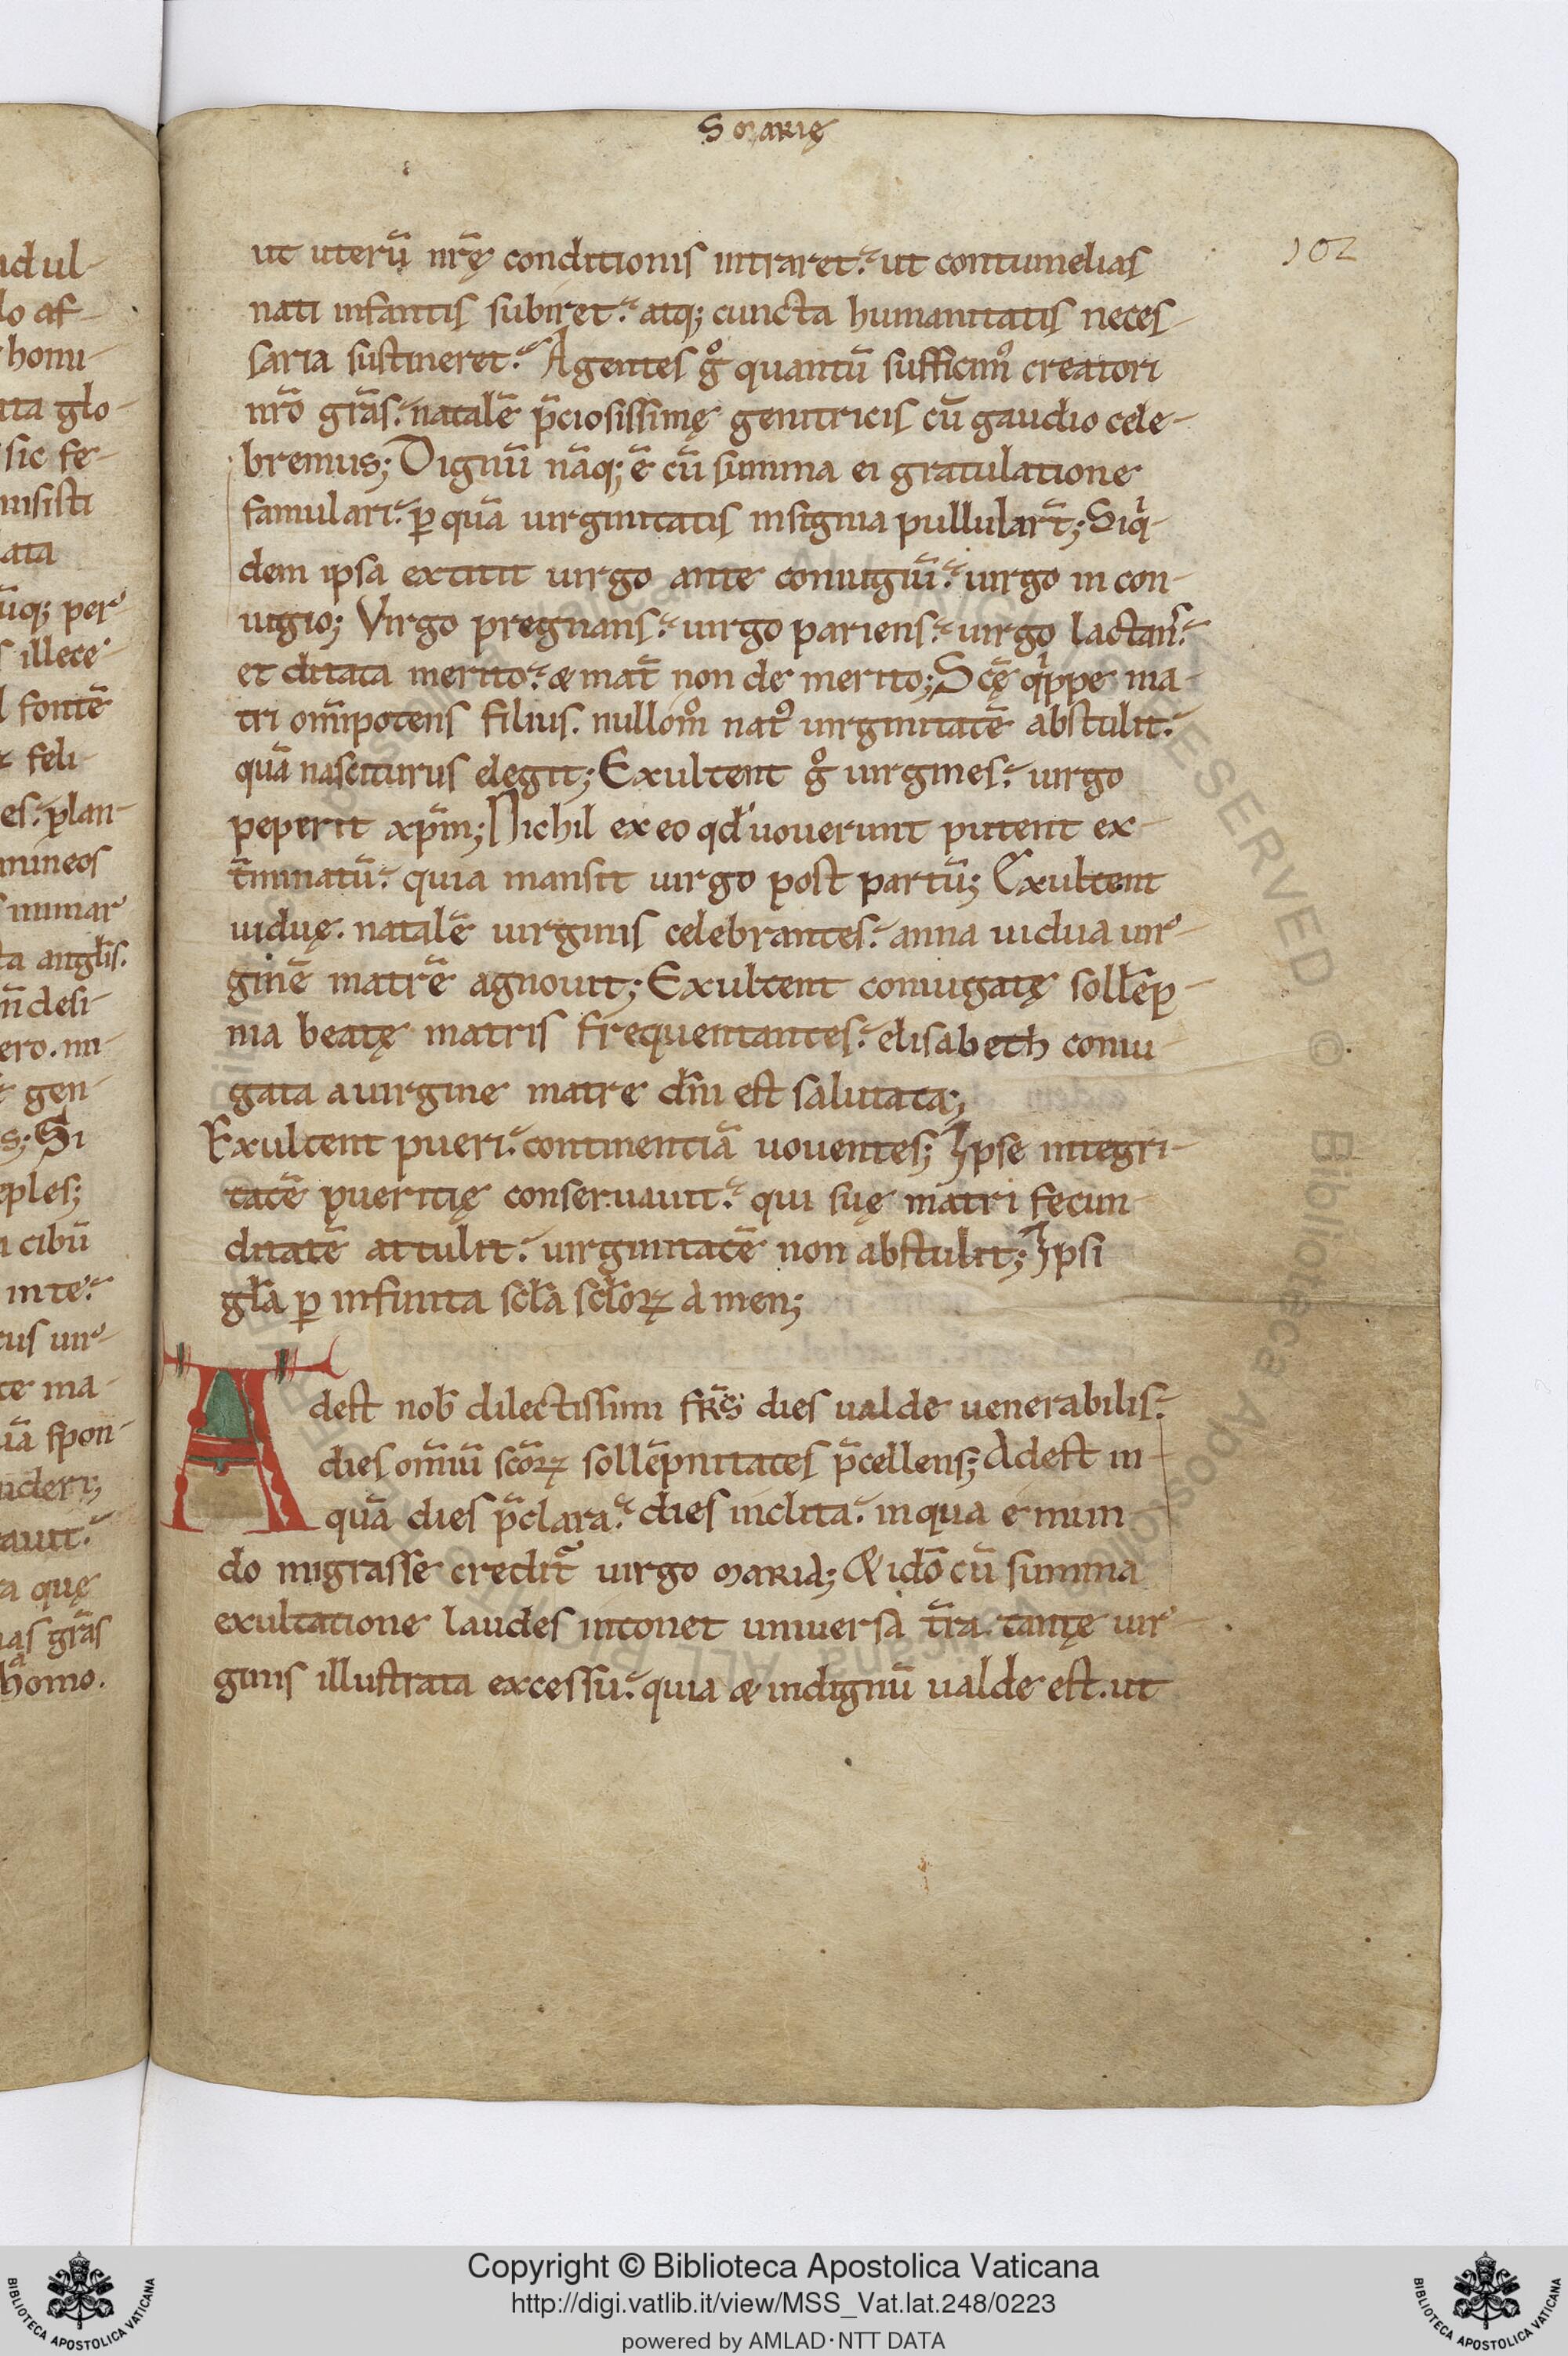 S MARIĘ
102
ut uterū nrę̄ conditionis intraret. ut contumelias
nati infantis subiret. atq; cuncta humanitatis neces-
saria sustineret. Agentes gͦ quantū sufficimꝰ creatori
nrō grās. natalē p̄ciosissimę genitricis cū gaudio cele-
bremus; Dignū nāq; ē cū summa ei gratulatione
famulari. ꝑ quā uirginitatis insignia pullular̄t; Siqͥ-
dem ipsa extitit uirgo ante coniugiū. uirgo in con-
iugio; Virgo pregnans. uirgo pariens. uirgo lactans.
et ditata merito. & mat̄ non de merito; Scę̄ qͥppe ma-
tri om̄ipotens filius. nullomͦ natꝰ uirginitatē abstulit.
quā nasciturus elegit; Exultent gͦ uirgines. uirgo
peperit xp̄m; Nichil ex eo qd̓ uouerunt putent ex-
t̄minatū. quia mansit uirgo post partū; Exultent
uiduę. natalē uirginis celebrantes. anna uidua uir-
ginē matrē agnouit; Exultent coniugatę sollēp-
nia beatę matris frequentantes. elisabeth coniu-
gata a uirgine matre dn̄i est salutata;
Exultent pueri. continentiā uouentes; Ipse integri-
tatē pueritię conseruauit. qui suę matri fecun-
ditatē attulit. uirginitatē non abstulit; Ipsi
gl̄a ꝑ infinita scl̄a scl̄oꝝ Amen;
Adest nob̄ dilectissimi frs̄ dies ualde uenerabilis.
dies om̄iū scōꝝ sollēpnitates p̄cellens; Adest in-
quā dies p̄clara. dies inclita. in qua e mun-
do migrasse credit̄ uirgo MARIA; Qͣ idō cū summa
exultatione laudes intonet uniuersa t̄ra. tantę uir-
ginis illustrata excessu. quia & indignū ualde est. ut
ad ul-
lo af-
homi-
ta glo-
sic fe-
misisti
ata
ūq; per
illece-
fontē
feli-
es. plan-
mineos
ta angl̄is.
n̄ desi-
ero. ni-
gen-
s; Si
eples;
cibū
in te.
tus uir-
te ma-
uā spon-
auit.
a quę
as grās
homo.
Copyright © Biblioteca Apostolica Vaticana
http://digi.vatlib.it/view/MSS_Vat.lat.248/0223
powered by AMLAD·NTT DATA
BIBLIOTECA APOSTOLICA VATICANA
BIBLIOTECA APOSTOLICA VATICANA